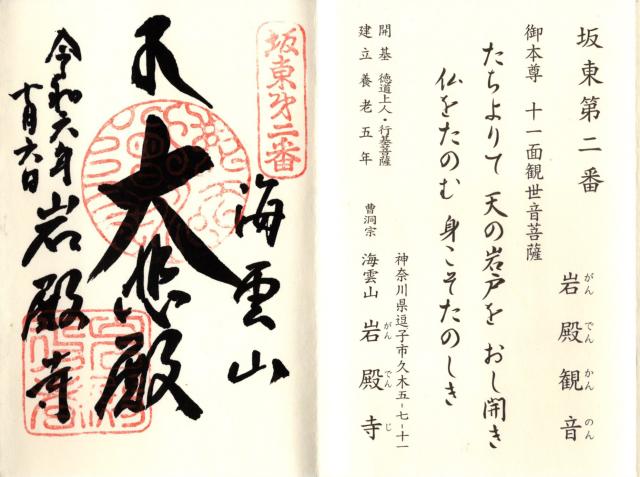 坂東第二番
岩殿観音
がんでんかんのん
御本尊 十一面観世音菩薩
たちよりて 天の岩戸を おし開き
仏をたのむ 身こそたのしき
開基 徳道上人・行基菩薩
建立 養老五年
神奈川県逗子市久木五-七-十一
曹洞宗 海雲山 岩殿寺
がんでんじ
坂東第二番
海雲山
大悲殿
岩殿寺
令和六年
十月六日